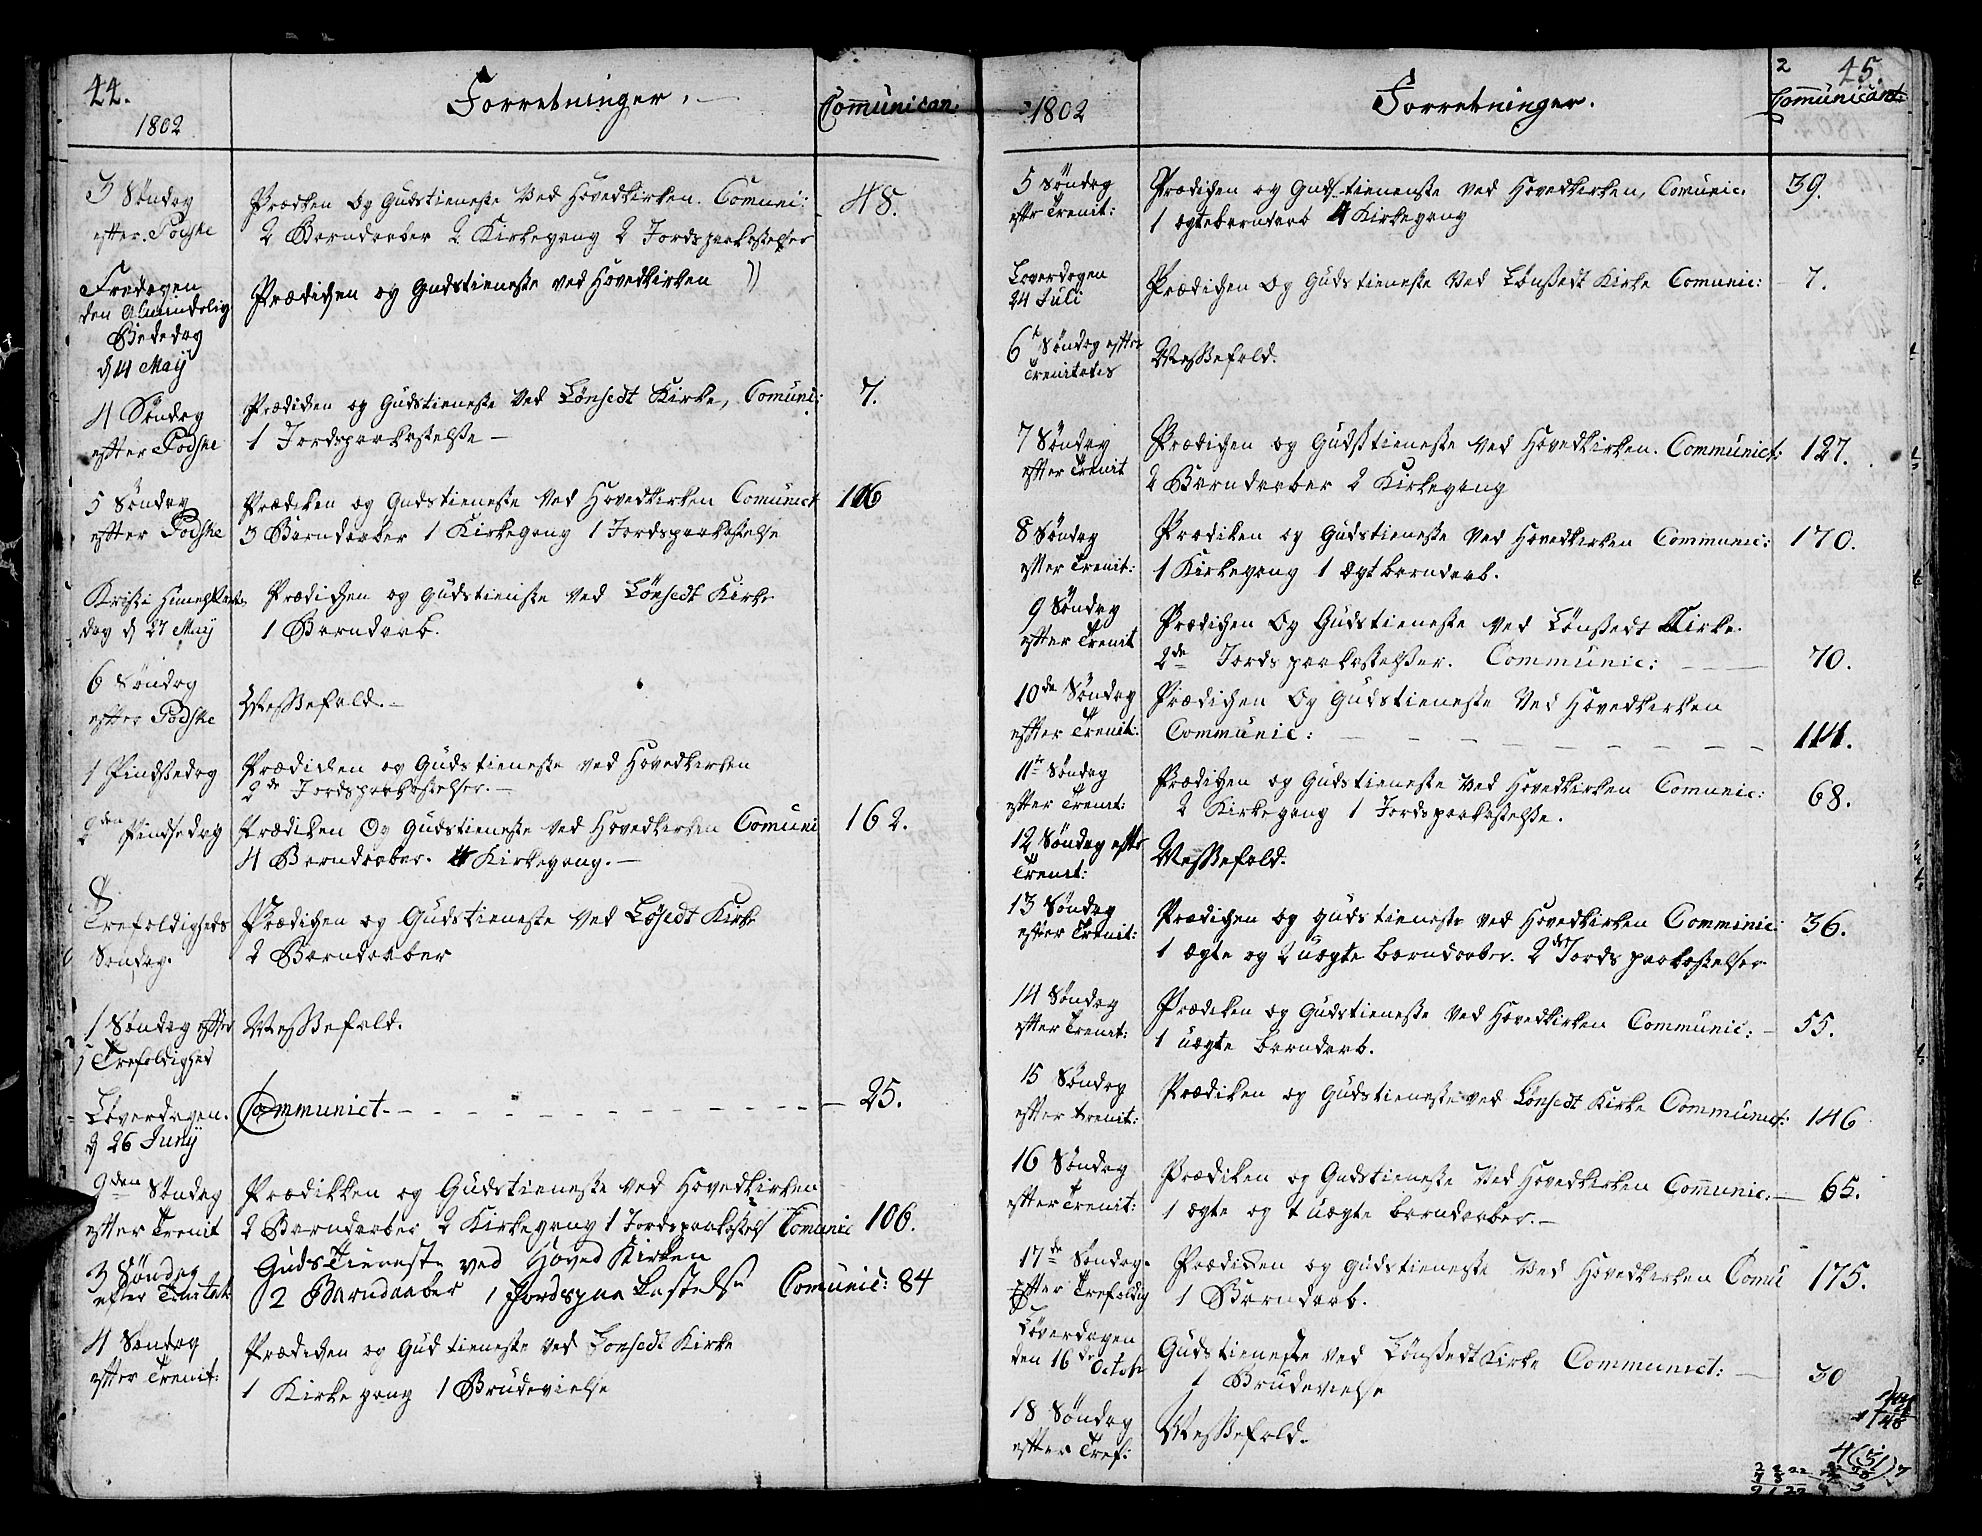 44.
1802
Forretninger.
Com̄unican.
3 Søndag
efter. Podske
Prædken Og Gudstieneste Ved Hovedkirken. Comuni:
48.
2 Barndaaber 2 Kirkegang 2 Jordspaakastelser
Fredagen
den Almindelig
Bededag
d 14 May
Prædichen og Gudstieneste ved Hovedkirken
4 Søndag
efter Podske
Prædichen og Gudstieneste Ved Lønsedt Kirke, Comuni:
7.
1 Jordspaakastelse
5 Søndag
efter Podske
Prædiken og Gudstieneste Ved Hovedkirken Comunict
106
3 Barndaaber 1 Kirkegang 1 Jordspaakastelse
Kristi Himelfarts
dag d 27 May
Prædichen og Gudstieniste Ved Lønsedt Kirke
1 Barndaab.
6 Søndag
efter Podske
Messefald.
1 Pindsedag
Prædichen og Gudstieneste ved Hovedkirken
2de Jordspaakastelser.
2den Pindsedag
Prædiken Og Gudstieneste Ved Hovedkirken Comuni
162.
4 Barndaaber. 4 Kirkegang.
Trefoldigheds
Søndag.
Prædichen og Gudstieneste Ved Løsedt Kirke
2 Barndaaber
1 Søndag efter
Trefoldighed
Messefald.
Løverdagen.
d 26 Junij
Communict.
25.
2den Søndag
efter Trenit
Prædikken og Gudstieneste Ved Hovedkirken
2 Barndaaber 2 Kirkegang 1 Jordspaakastels Comunic
106.
3 Søndag
efter Trinitat
GudsTieneste ved Hoved Kirken
2 Barndaaber 1 Jordspaa kastelse Comunic: 84
4 Søndag
efter Trenit:
Prædichen og Gudtieneste Ved Lonsedt Kirke
1 Kirkegang 1 Brudevielse
2 45.
1802
Forretninger.
Com̄unicant
5 Søndag
efter Trenit:
Prædichen og Gudstienenste Ved Hovedkirken, Comunic.
39.
1 ægtebarndaab 4 Kirkegang
Løverdagen
24 Juli
Prædichen Og Gudstieneste Ved Lønssedt Kirke Comunic:
7.
6 Søndag efter
Trenitatis
Messefald.
7 Søndag
efter Trenit
Prædichen og Gudstieneste Ved Hovedkirken. Communict:
127.
2 Barndaaber 2 Kirkegang
8 Søndag
efter Trenit:
Prædiken og Gudstieneste Ved Hovedkirken Communic:
170.
1 Kirkegang 1 Ægtbarndaab.
9 Søndag
efter Trenit
Prædichen Og Gudstieneste Ved Lønssedt Kirke.
2de Jordspaakastelsser. Communic:
70.
10de Søndag
efter Trenit:
Prædichen Og Gudstieneste Ved Hovedkirken
Communic:
114.
11te Søndag
efter Trenit:
Prædichen og Gudstieneste Ved Hovedkirken Comunic:
68.
2 Kirkegang 1 Jordspaakastelse.
12 Søndag efter
Trenit:
Messefald.
13 Søndag
efter Trenit:
Prædichen og gudstieneste ved Hovedkirken Comminic:
36.
1 ægte og 2 uægte barndaaber. 2de Jordspaakastelser
14 Søndag
efter Trenit:
Prædeken og Gudstieneste Ved Hovedkirken Communic:
55.
1 uægte barndaab.
15 Søndag
efter trenit:
Prædiken og Gudstieneste ved Lønsedt Kirke Communict:
146
16 Søndag
efter Trenit:
Prædiken og Gudstieneste Ved Hovedkirken Com̄unic:
65.
1 ægte og 1 uægte barndaaber.
17de Søndag.
Efter Trefoldig
Prædicken og Gudstieneste Ved Hovedkirken Comu
175.
1 Barndaab.
Løverdagen
den 16de Octob
Gudstieneste Ved Lønssedt Kirke Communict:
30
1 Brudevielse
18 Søndag
efter Tref:
Messefald.